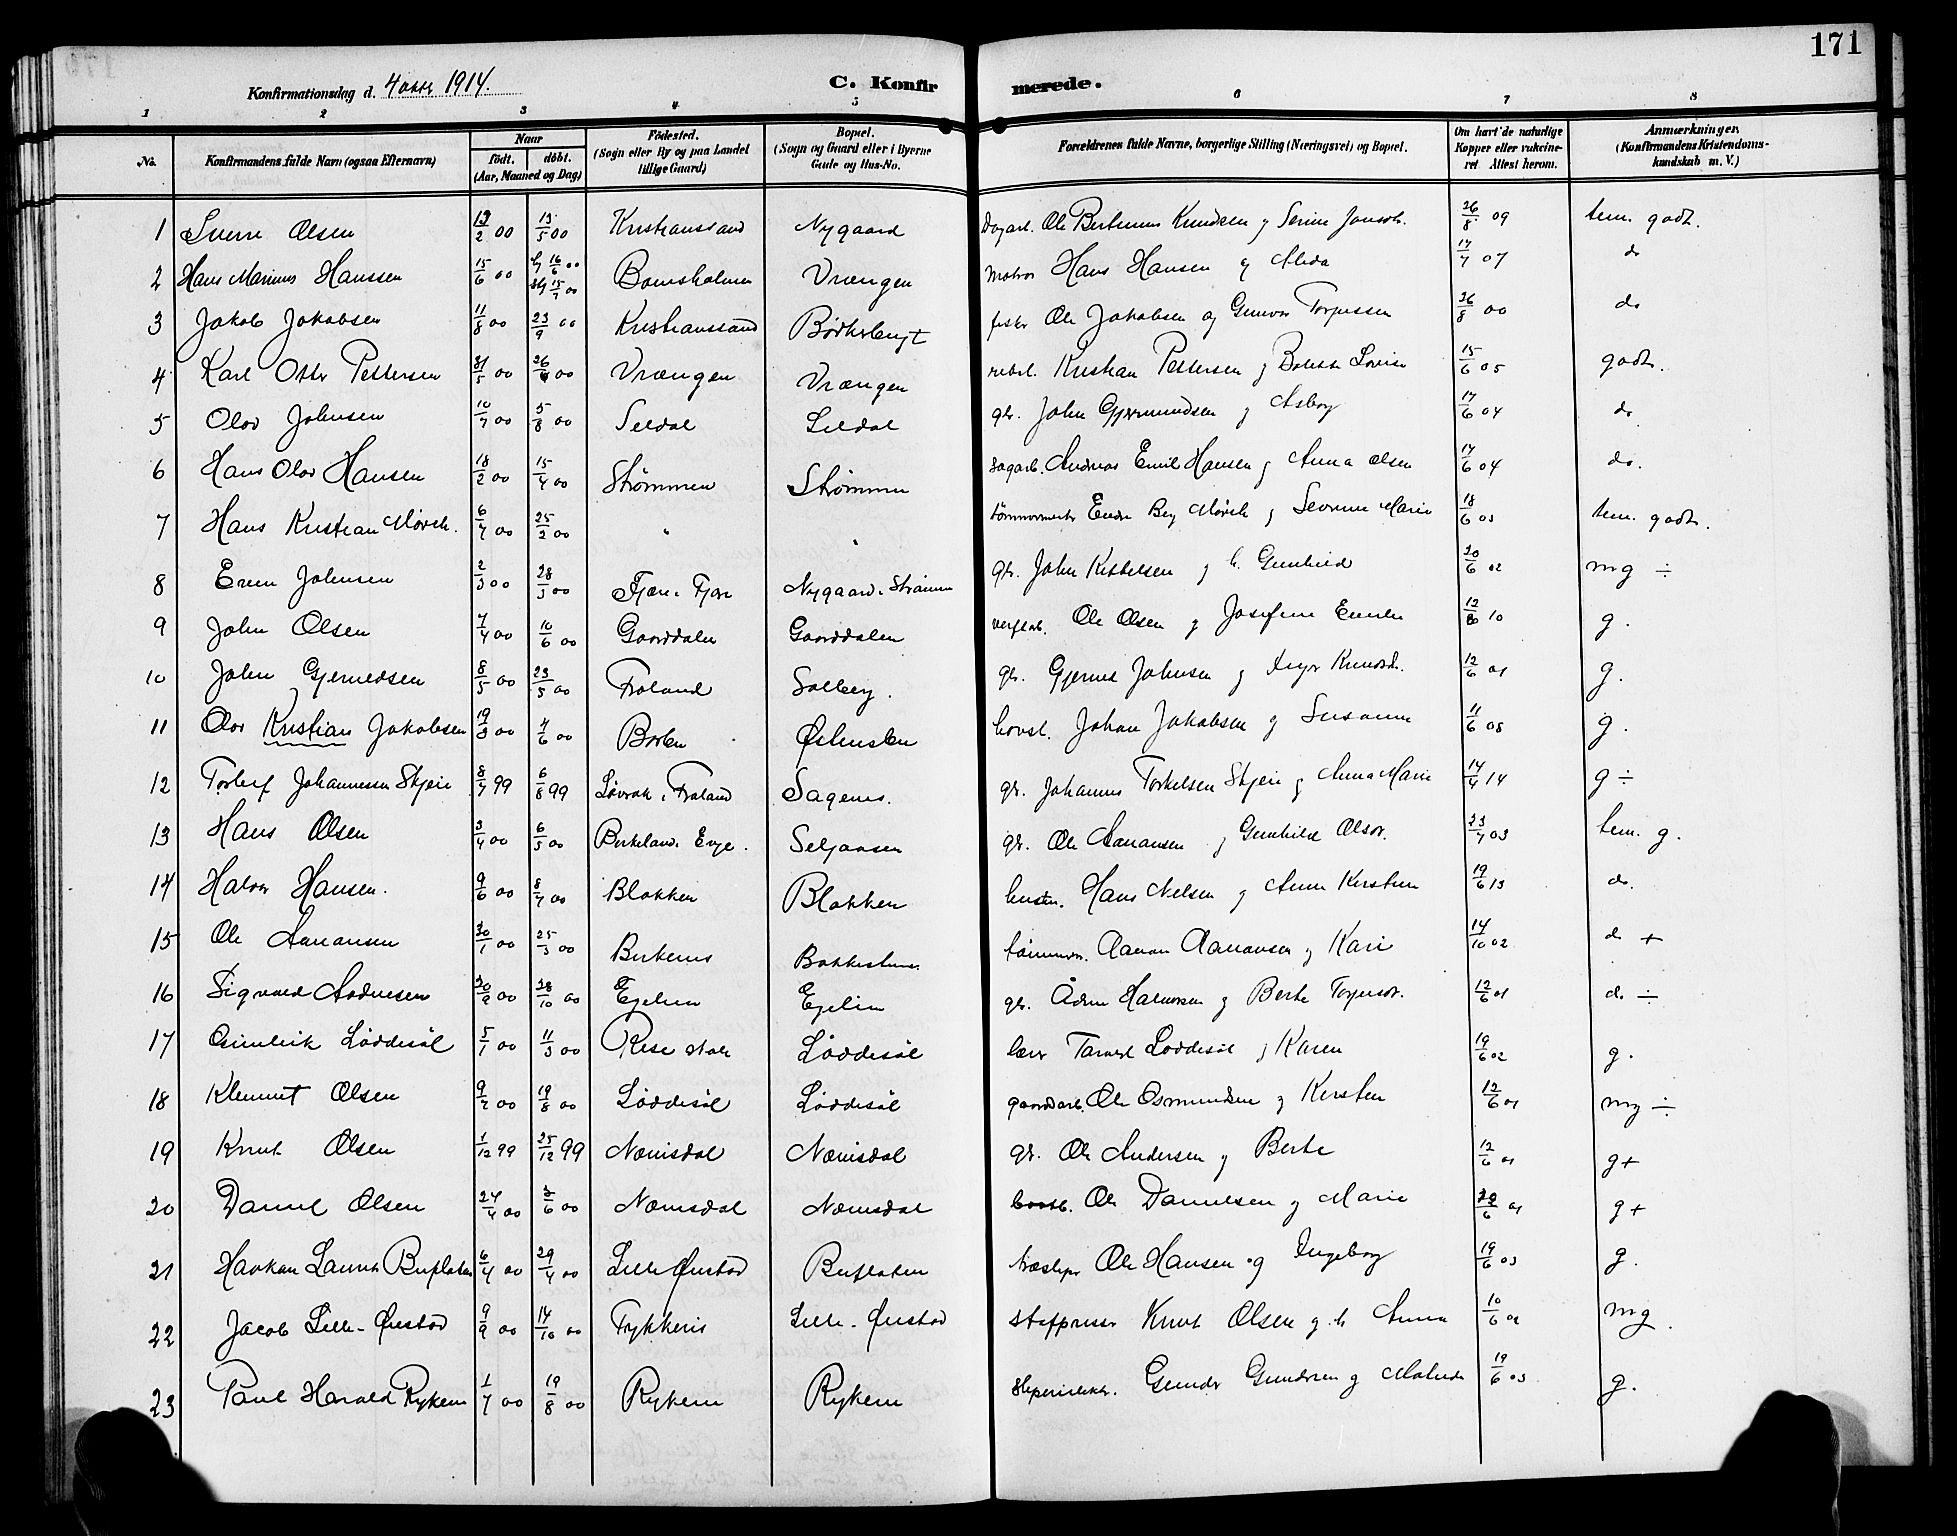 171
Konfirmationsdag d. 4 oktr 1914. C. Konfirmerede.
1 2 3 4 5 6 7 8
No. Konfirmandens fulde Navn (ogsaa Efternavn) Naar født. døbt. (Aar, Maaned og Dag) Fødested. (Sogn eller By og paa Landet tillige Gaard) Bopæl. (Sogn og Gaard eller i Byerne Gade og Hus-No. Forældrenes fulde Navne, borgerlige Stilling (Næringsvei) og Bopæl. Om havt de naturlige Kopper eller vakcineret Attest herom. Anmærkninger. (Konfirmandens Kristendomskundskab m. V.)
1 Sverre Olsen 13/2 00 13/5 00 Kristianssand Nygaard Dagarb. Ole Bertinius Knudsen og Serine Jonsdt. 26/8 09 tem. godt.
2 Hans Marinus Hanssen 15/6 00 16/6 00 15/7 00 Bomsholmen Vrængen matros Hans Hansen og Alida 17/7 07 do
3 Jakob Jakobsen 11/8 00 23/9 00 Kristianssand Bødkerbugt fisker Ole Jakobsen og Gunvor Torjussen 26/8 00 do
4 Karl Otto Pettersen 31/5 00 26/6 00 Vrængen Vrængen Kristian Pettersen og Bolette Lovise 15/6 05 godt.
5 Olav Johnsen 10/7 00 5/8 00 Seldal Seldal gbr. John Gjermundsen og Asborg 17/6 04 do
6 Hans Olav Hansen 18/2 00 15/4 00 Strømmen Strømmen dagarb. Andreas Emil Hansen og Anna Olsen 17/6 04 do.
7 Hans Kristian Mørch. 6/7 00 25/2 00 " " tømmermester Endre Berg Mørch og Severine Marie 18/6 03 tem. godt.
8 Even Johnsen 2/3 00 28/3 00 Fjære, Fjære Nygaard, Strømmen gbr. John Kittelsen og h. Gunhild 20/6 02 mg ÷
9 John Olsen 7/4 00 10/6 00 Gaarddalen Gaarddalen verftarb. Ole Olsen og Josefine Emilie 12/8 10 g.
10 John Gjermedsen 8/5 00 23/5 00 Froland Solberg. gbr. Gjermed Johnsen og Inger Knudsdt. 12/6 01 g.
11 Olav Kristian Jakobsen 19/3 00 4/6 00 Borken Østensten Johan Jakobsen og Susanne 11/6 08 g.
12 Torleif Johannessen Skjeie 8/7 99 6/8 99 Løvrak, Froland Sagenes. gbr. Johannes Torkelsen Skjeie og Anna Marie 14/4 14 g ÷
13 Hans Olsen 3/4 00 6/5 00 Birkeland, Evje. Seljaasen gbr. Ole Aanansen og Gunhild Olsdt. 23/7 03 tem. g.
14 Halvor Hansen. 9/6 00 8/7 00 Blakken Blakken husm. Hans Nilsen og Anne Kirstine 19/6 13 do.
15 Ole Aanansen 30/1 00 25/3 00 Birkenes Bakkestuen tømmerm. Aanon Aanansen og Kari 14/10 02 do +
16 Sigvald Andresen 30/9 00 28/10 00 Egelien Egelien gbr. Halvorsen og Berte Torjusdt. 12/6 01 do ÷
17 Løddesøl 5/1 00 11/3 00 Rise skole Løddesøl lærer Tarald Løddesøl og Karen 19/6 02 g.
18 Klemmet Olsen 9/7 00 19/8 00 Løddesøl Løddesøl gaardarb. Ole Osmundsen og Kirsten 12/6 01 mg ÷
19 Knut Olsen 1/12 99 25/12 99 Næmisdal Næmisdal gbr. Ole Andersen og Berte 12/6 01 g+
20 Daniel Olsen 24/4 00 3/6 00 Næmisdal Næmisdal Ole Danielsen og Marie 22/6 01 g+
21 Haakon Laurits Buflaten 6/4 00 29/4 00 Lille Ørstad Buflaten træsliper Ole Hansen og Ingeborg 19/6 03 g.
22 Jacob Lille-Ørstad 9/9 00 14/10 00 Trykkeris Lille-Ørstad stofpresser Knut Olsen og h. Anna 10/6 01 mg.
23 Paul Harald Rykene 1/7 00 19/8 00 Rykene Rykene Gunder Gundersen og Malinde 19/6 03 g.